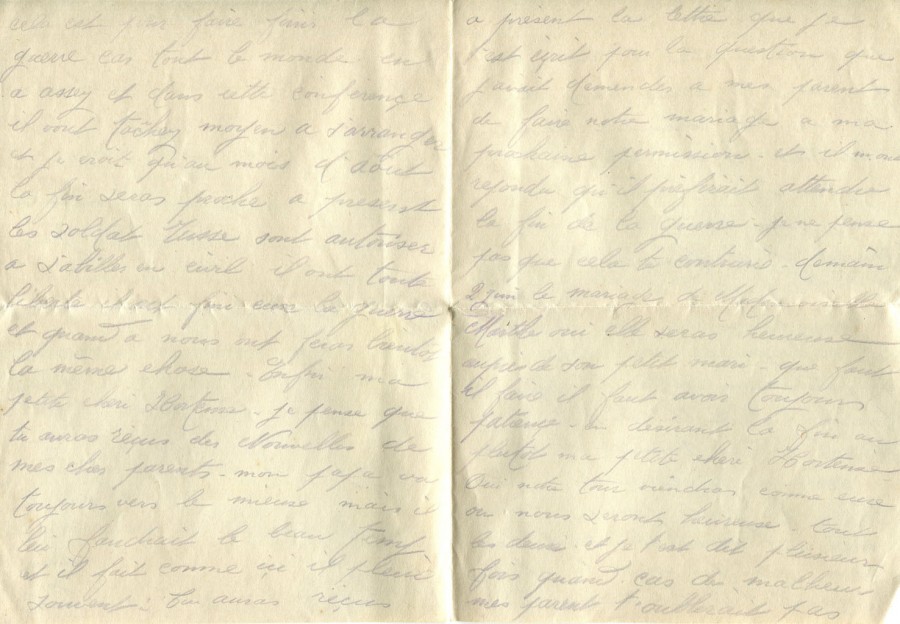 cela est pour faire finir la
guerre car tout le monde en
a assey et dans cette conference
il vont tacher moyen a s'arranger
et je croit qu'au mois d'août
la fin seras proche a present
les soldat Russe sont autoriser
a s'abiller en civil il ont toute
liberté c'est fini la guerre
et quand a nous ont feras bientot
la même chose - Enfin ma
petite cheri Hortense - je pense que
tu auras reçus des Nouvelles de
mes cher parents - mon papa va
toujours vers le mieuse mais il
lui faudrait le beau temp
et il fait comme ici il pleut
souvent. Tu auras reçus
a présent la lettre que je
t'est écrit pour la question que
j'avait demender a mes parent
de faire notre mariage a ma
prochaine permission - et il m'ont
repondu qu'il préférait attendre
la fin de la guerre - je ne pense
pas que cela te contrarie - demain
2 juin le mariage de
Marthe oui elle seras heureuse
auprès de son petit mari - que faut
il faire il faut avoir toujours
patience - en désirant la fin au
plutôt ma petite cheri Hortense
Oui notre tour viendras comme euse
ou nous seront heureuse tout
les deux et je t'est dit plusieur
fois quand cas de malheur
mes parent t'oublirait pas